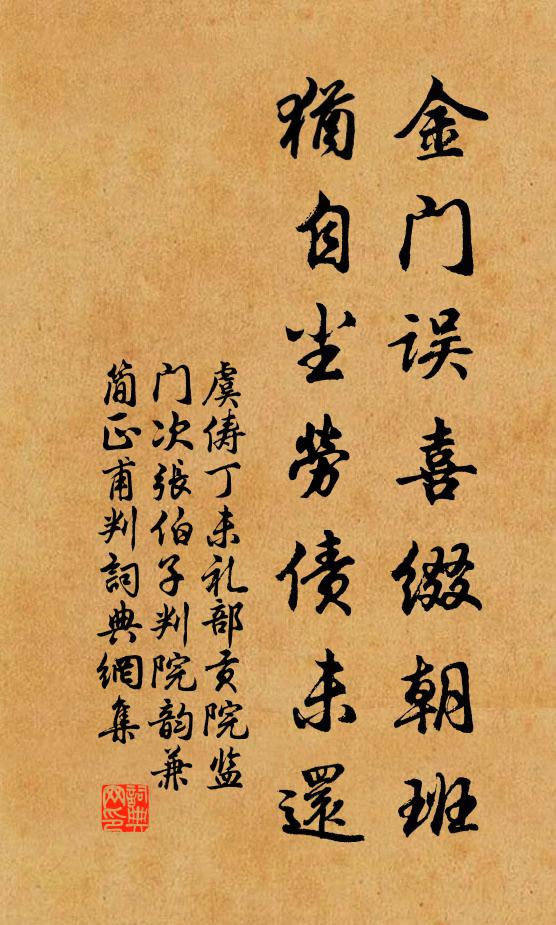 金门误喜缀朝班
犹自尘劳债未還
虞俦丁未礼部贡院监
门次張伯子判院韵兼
简正甫判詞典網集
詞典網印